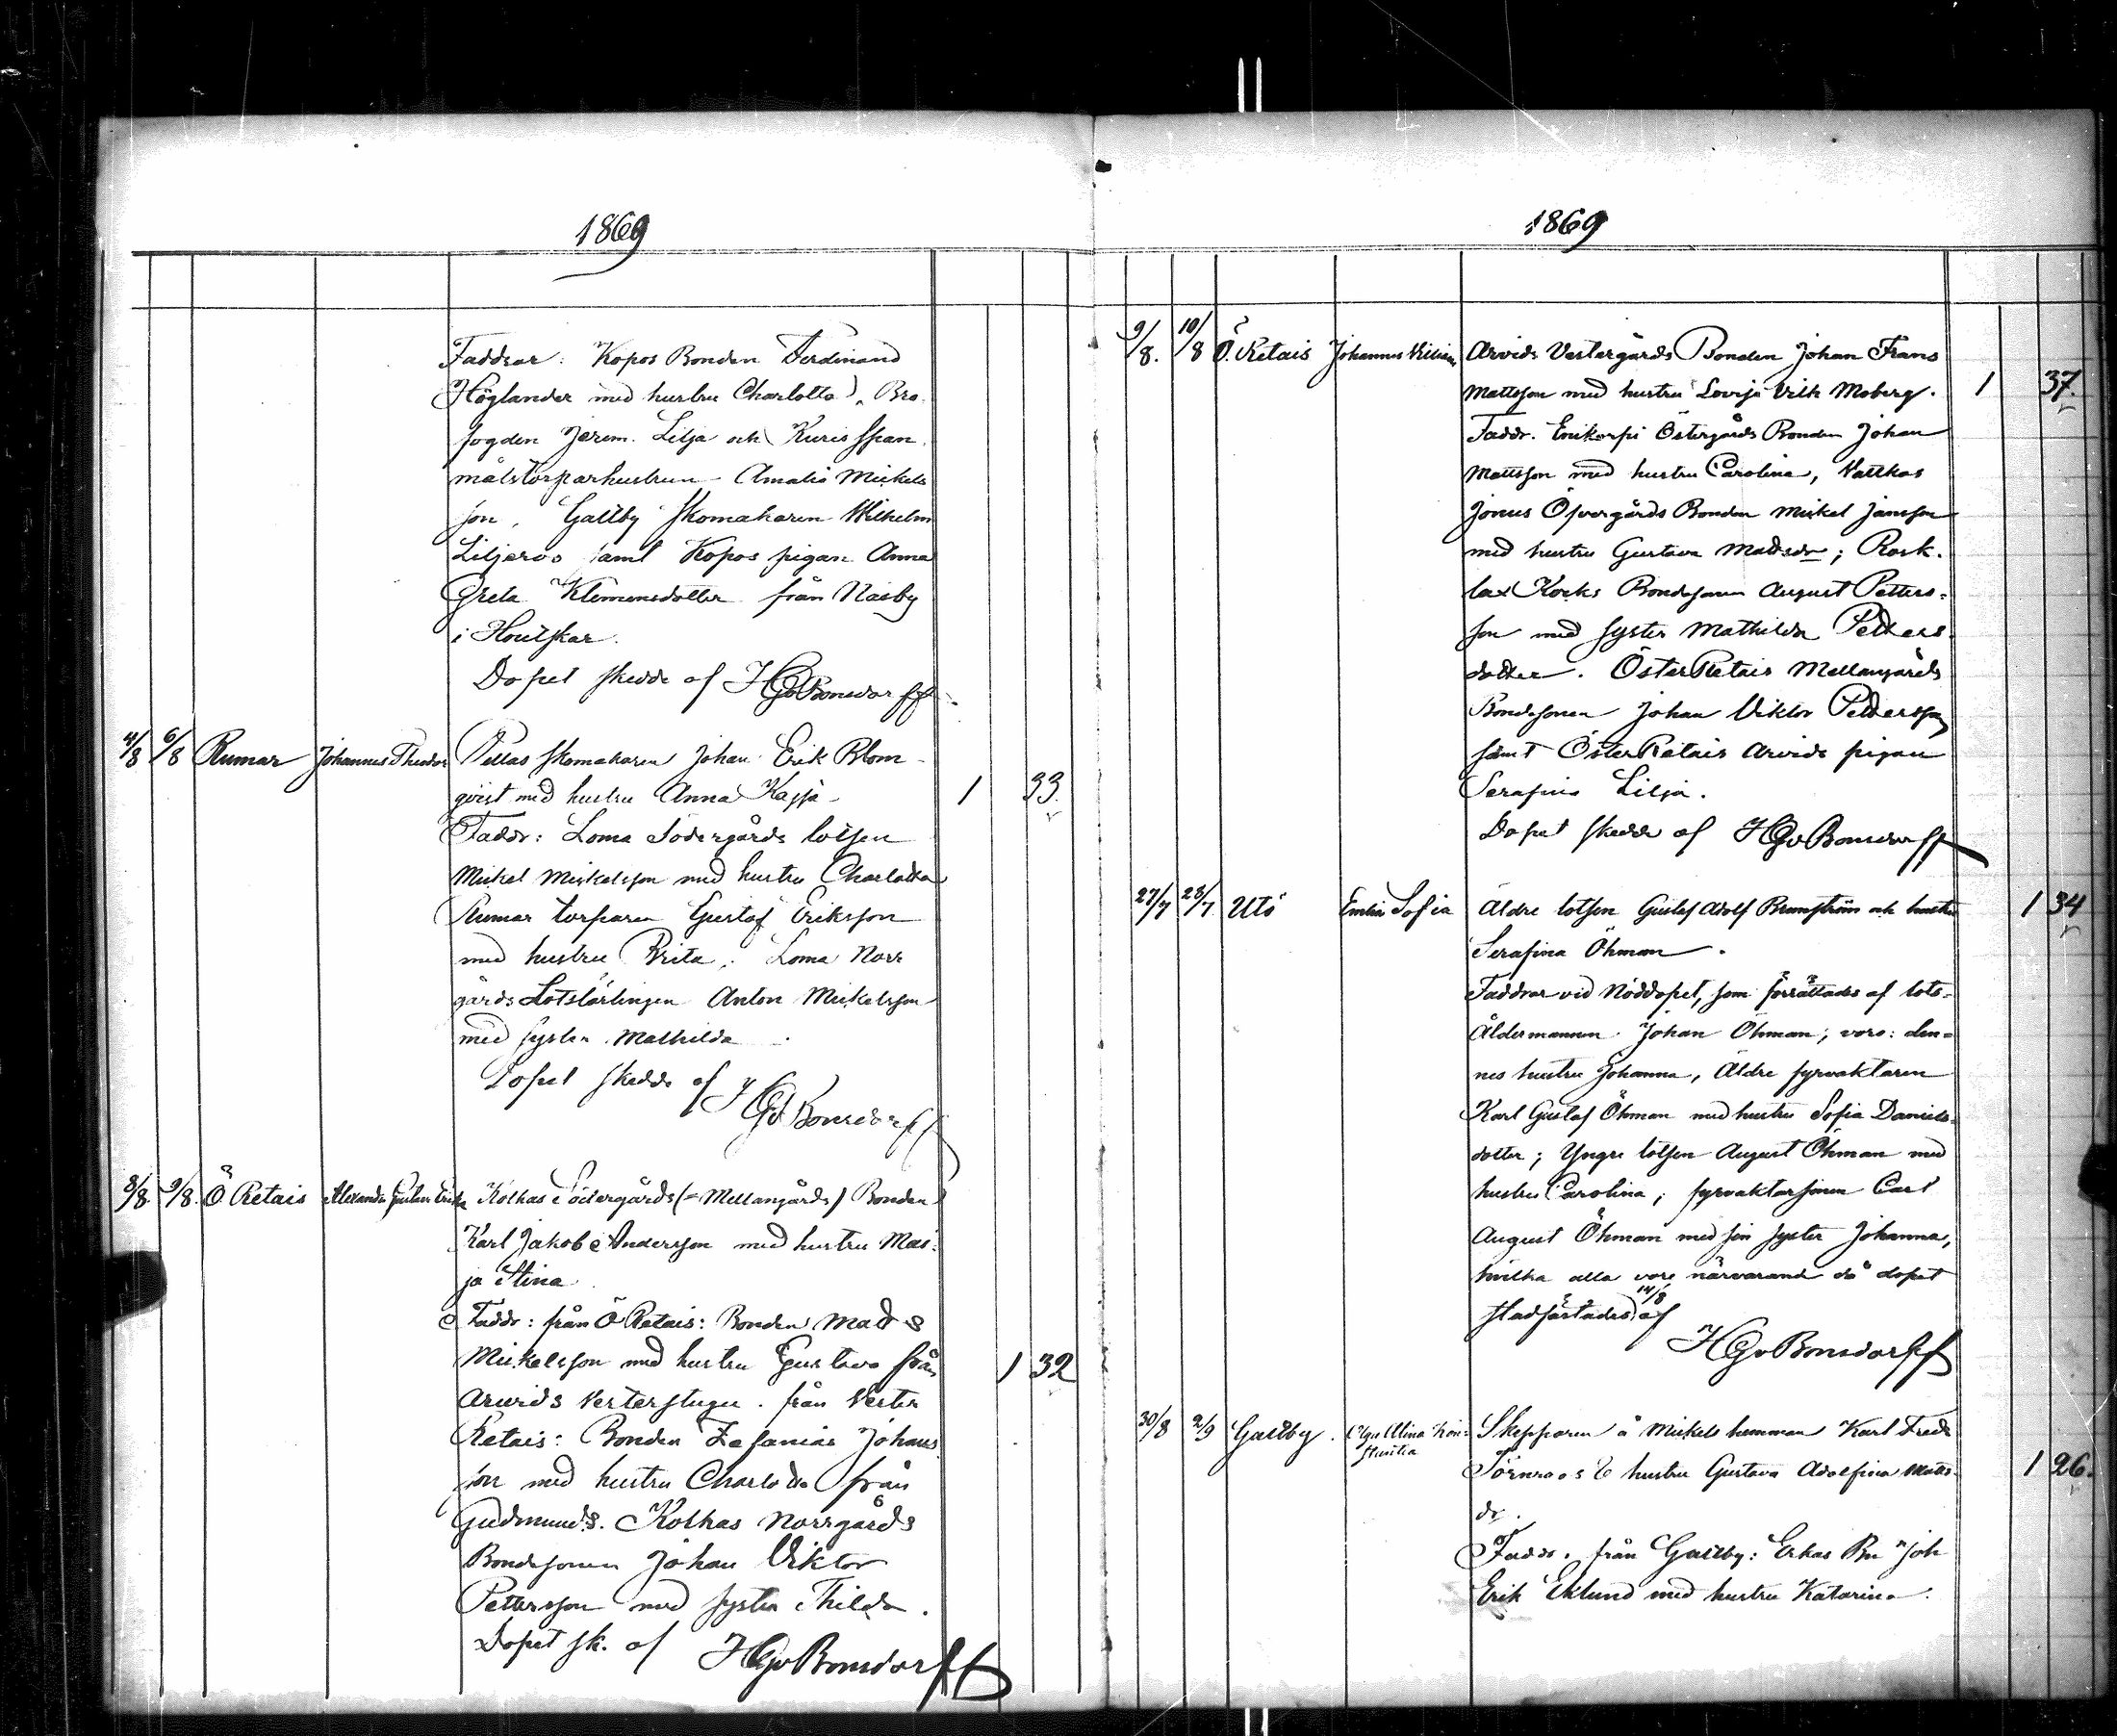 1869
Faddrar: Kopos Bonden Ferdinand
Höglander med hustru Charlotta, Bro
fogden Jerem. Lilja och Kuris span
målstorparhustrun Amalia Mickels
son, Galtby skomakaren Wilhelm
Liljeros samt Kopos pigan Anna
Greta Klemensdotter från Näsby
i Houtskar.
Dopet skedde af HGvBonsdorff
4/8 6/8 Rumar Johannes Theodor Pellas skomakaren Johan Erik Blom
qvist med hustru Anna Kajsa 1 33.
Faddr: Loma Södergårds lotsen
Mickel Mickelsson med hustru Charlotta
Rumar torparen Gustaf Eriksson
med hustru Brita. Loma Norr
gårds Lotslärlingen Anton Mickelsson
med syster Mathilda
Dopet skedde af HGvBonsdorff
8/8. 9/8. Ö Retais Alexander Gustav Kolkas Södergårds (=Mellangårds) Bonden
Karl Jakob Andersson med hustru Mai:
ja Stina
Faddr: från Ö Retais: Bonden Mads
Mickelsson med hustru Gustava från 1 32
Arvids Vesterstugu. från Vester
Retais: Bonden Zefanias Johans
son med hustru Charlotta från
Gudmunds. Kolkas Norrgårds
Bondesonen Johan Viktor
Pettersson med syster Thilda.
Dopet sk. af HGvBonsdorff
1869
9/8. 10/8 Ö. Retais Johannes Arvids Vestergårds Bonden Johan Frans
Mattsson med hustru Lovisa Vilh Moberg. 1 37.
Faddr. Östergårds Bonden Johan
Mattsson med hustru Carolina, Vattkas
Jonus Öfvergårds Bonden Mickel Jansson
med hustru Gustava Madsdr; Rosk.
lax Kocks Bondesonen August Petters=
son med syster Mathilda Petters
dotter. Öster Retais Mellangårds
Bondesonen Johan Viktor Pettersson
samt Öster Retais Arvids pigan
Serafina Lilja.
Dopet skedde af HGvBonsdorff
27/7 28/7 Utö Emilia Sofia Äldre lotsen Gustaf Adolf Brunström och hustru 1 34
Serafina Öhman.
Faddrar vid Nöddopet, som förrättades af lots=
Åldermannen Johan Öhman; voro: den=
nes hustru Johanna, Äldre fyrvaktaren
Karl Gustaf Öhman med hustru Sofia Daniels
dotter; Yngre lotsen August Öhman med
hustru Carolina; fyrvaktarsonen Carl
August Öhman med sin syster Johanna,
hvilka alla voro närvarande då dopet
stadfästades 14/8 af
HGvBonsdorff
30/8 2/9 Galtby. Olga Alina Kon=
stantia Skepparen å Mickels hemman Karl Fredr
Törnroos & hustru Gustava Adolfina Matts 1 26.
dr.
Faddr. från Galtby: Erkas Bn Joh
Erik Eklund med hustru Katarina.